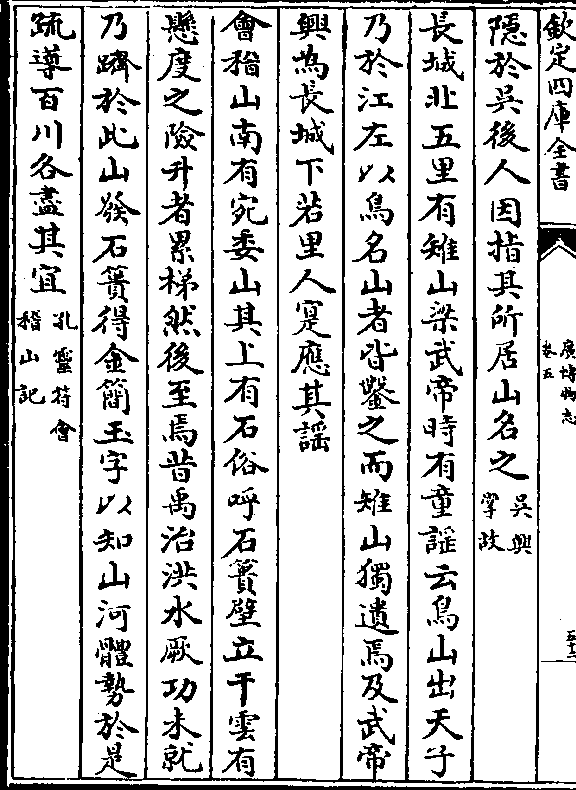 欽定四庫全書
廣博物志
卷五
隱於吳後人因指其所居山名之吳興
掌故
長城北五里有雉山梁武帝時有童謡云鳥山出天子
乃於江左以鳥名山者皆鑿之而雉山獨遺焉及武帝
興為長城下若里人寔應其謡
會稽山南有宛委山其上有石俗呼石簣壁立干雲有
懸度之險升者累梯然後至焉昔禹治洪水厥功未就
乃躋於此山發石簣得金簡玉字以知山河體勢於是
疏導百川各盡其宜孔靈符會
稽山記